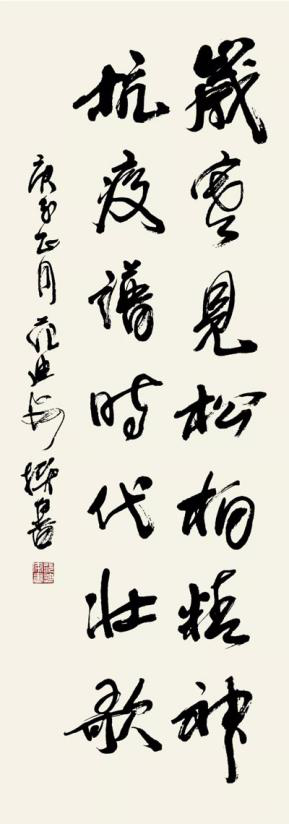 歲寒見松柏精神
抗疫譜時代壯歌
庚子正月范迪安撰書